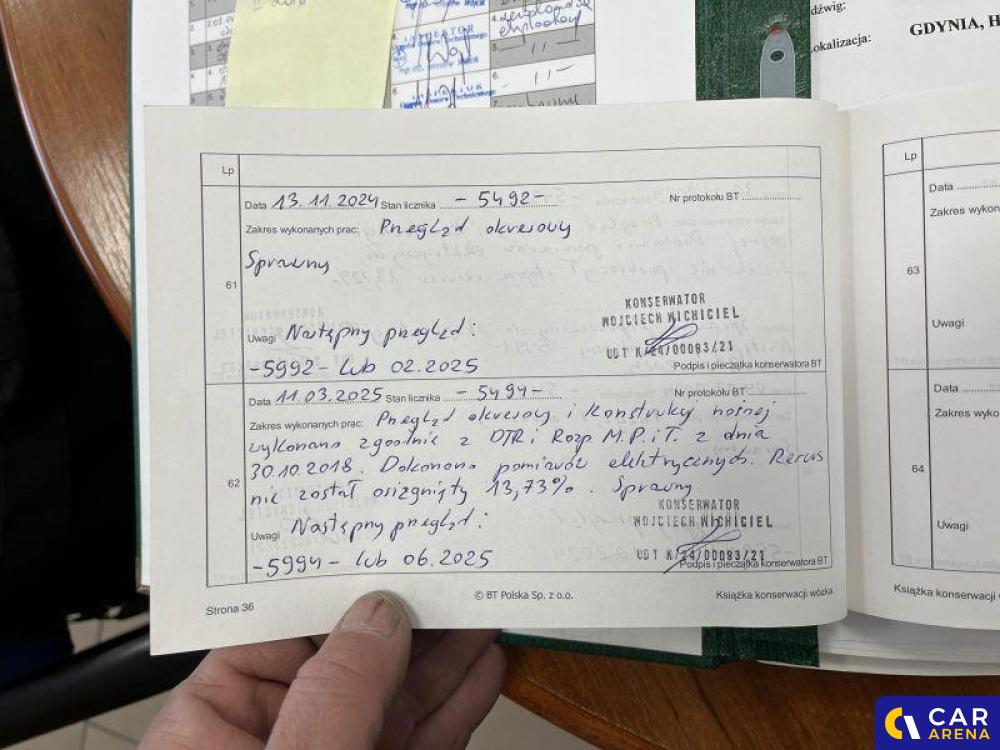 dźwig:
GDYNIA, H
Lokalizacja:
Lp
Data 13.11.2024 Stan licznika - 5492 - Nr protokołu BT
Zakres wykonanych prac: Przegląd okresowy
Sprawny
61
KONSERWATOR
WOJCIECH WICHICIEL
Uwagi Następny przegląd:
UDT K/24/00083/21
-5992- lub 02.2025
Podpis i pieczątka konserwatora BT
Data 11.03.2025 Stan licznika - 5494 - Nr protokołu BT
Zakres wykonanych prac: Przegląd okresowy i konstrukcji nośnej
wykonano zgodnie z DTR i Rozp M.P.iT. z dnia
30.10.2018. Dokonano pomiarów elektrycznych. Resurs
62
nie został osiągnięty 13,73%. Sprawny.
KONSERWATOR
WOJCIECH WICHICIEL
Uwagi Następny przegląd:
UDT K/24/00083/21
-5994- lub 06.2025
Podpis i pieczątka konserwatora BT
Strona 36
© BT Polska Sp. z o.o.
Książka konserwacji wózka
Lp
Data
Zakres wykon
63
Uwagi
Data
Zakres wykon
64
Uwagi
Książka konserwacji w
CAR
ARENA